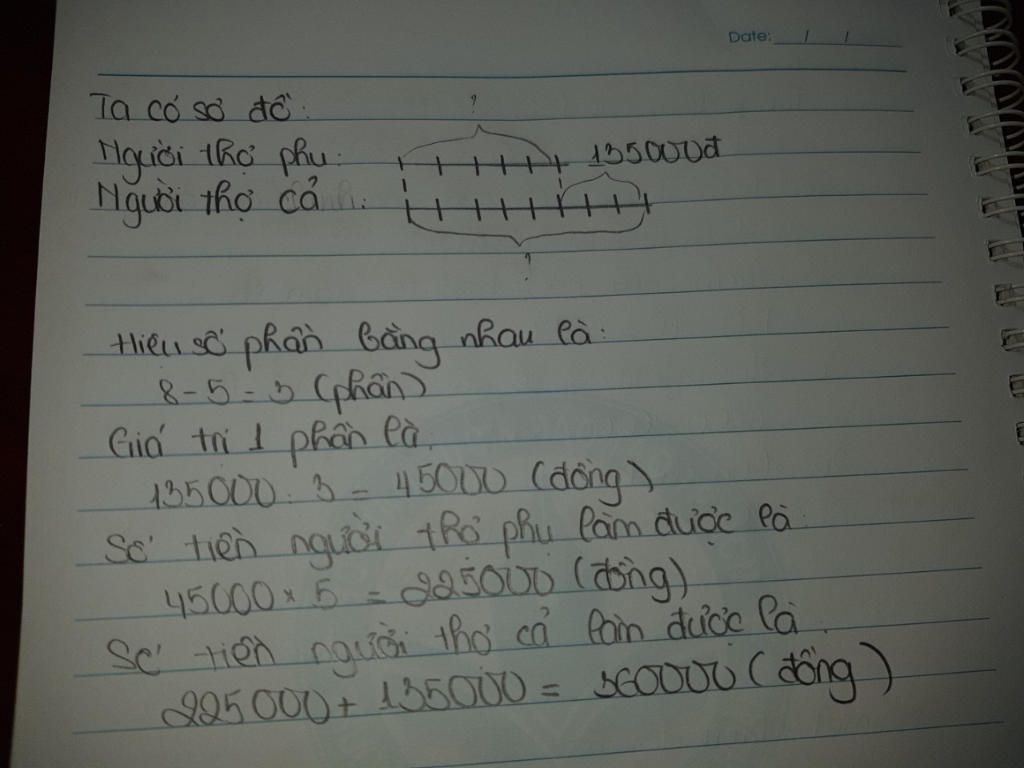 Date: / /
?
Ta có sơ đồ:
Người thợ phụ: 135000đ
Người thợ cả :
?
Hiệu số phần bằng nhau là:
8 - 5 = 3 (phần)
Giá trị 1 phần là.
135000 : 3 = 45000 (đồng)
Số tiền người thợ phụ làm được là
45000 × 5 = 225000 (đồng)
Số tiền người thợ cả làm được là.
225000 + 135000 = 360000 (đồng)